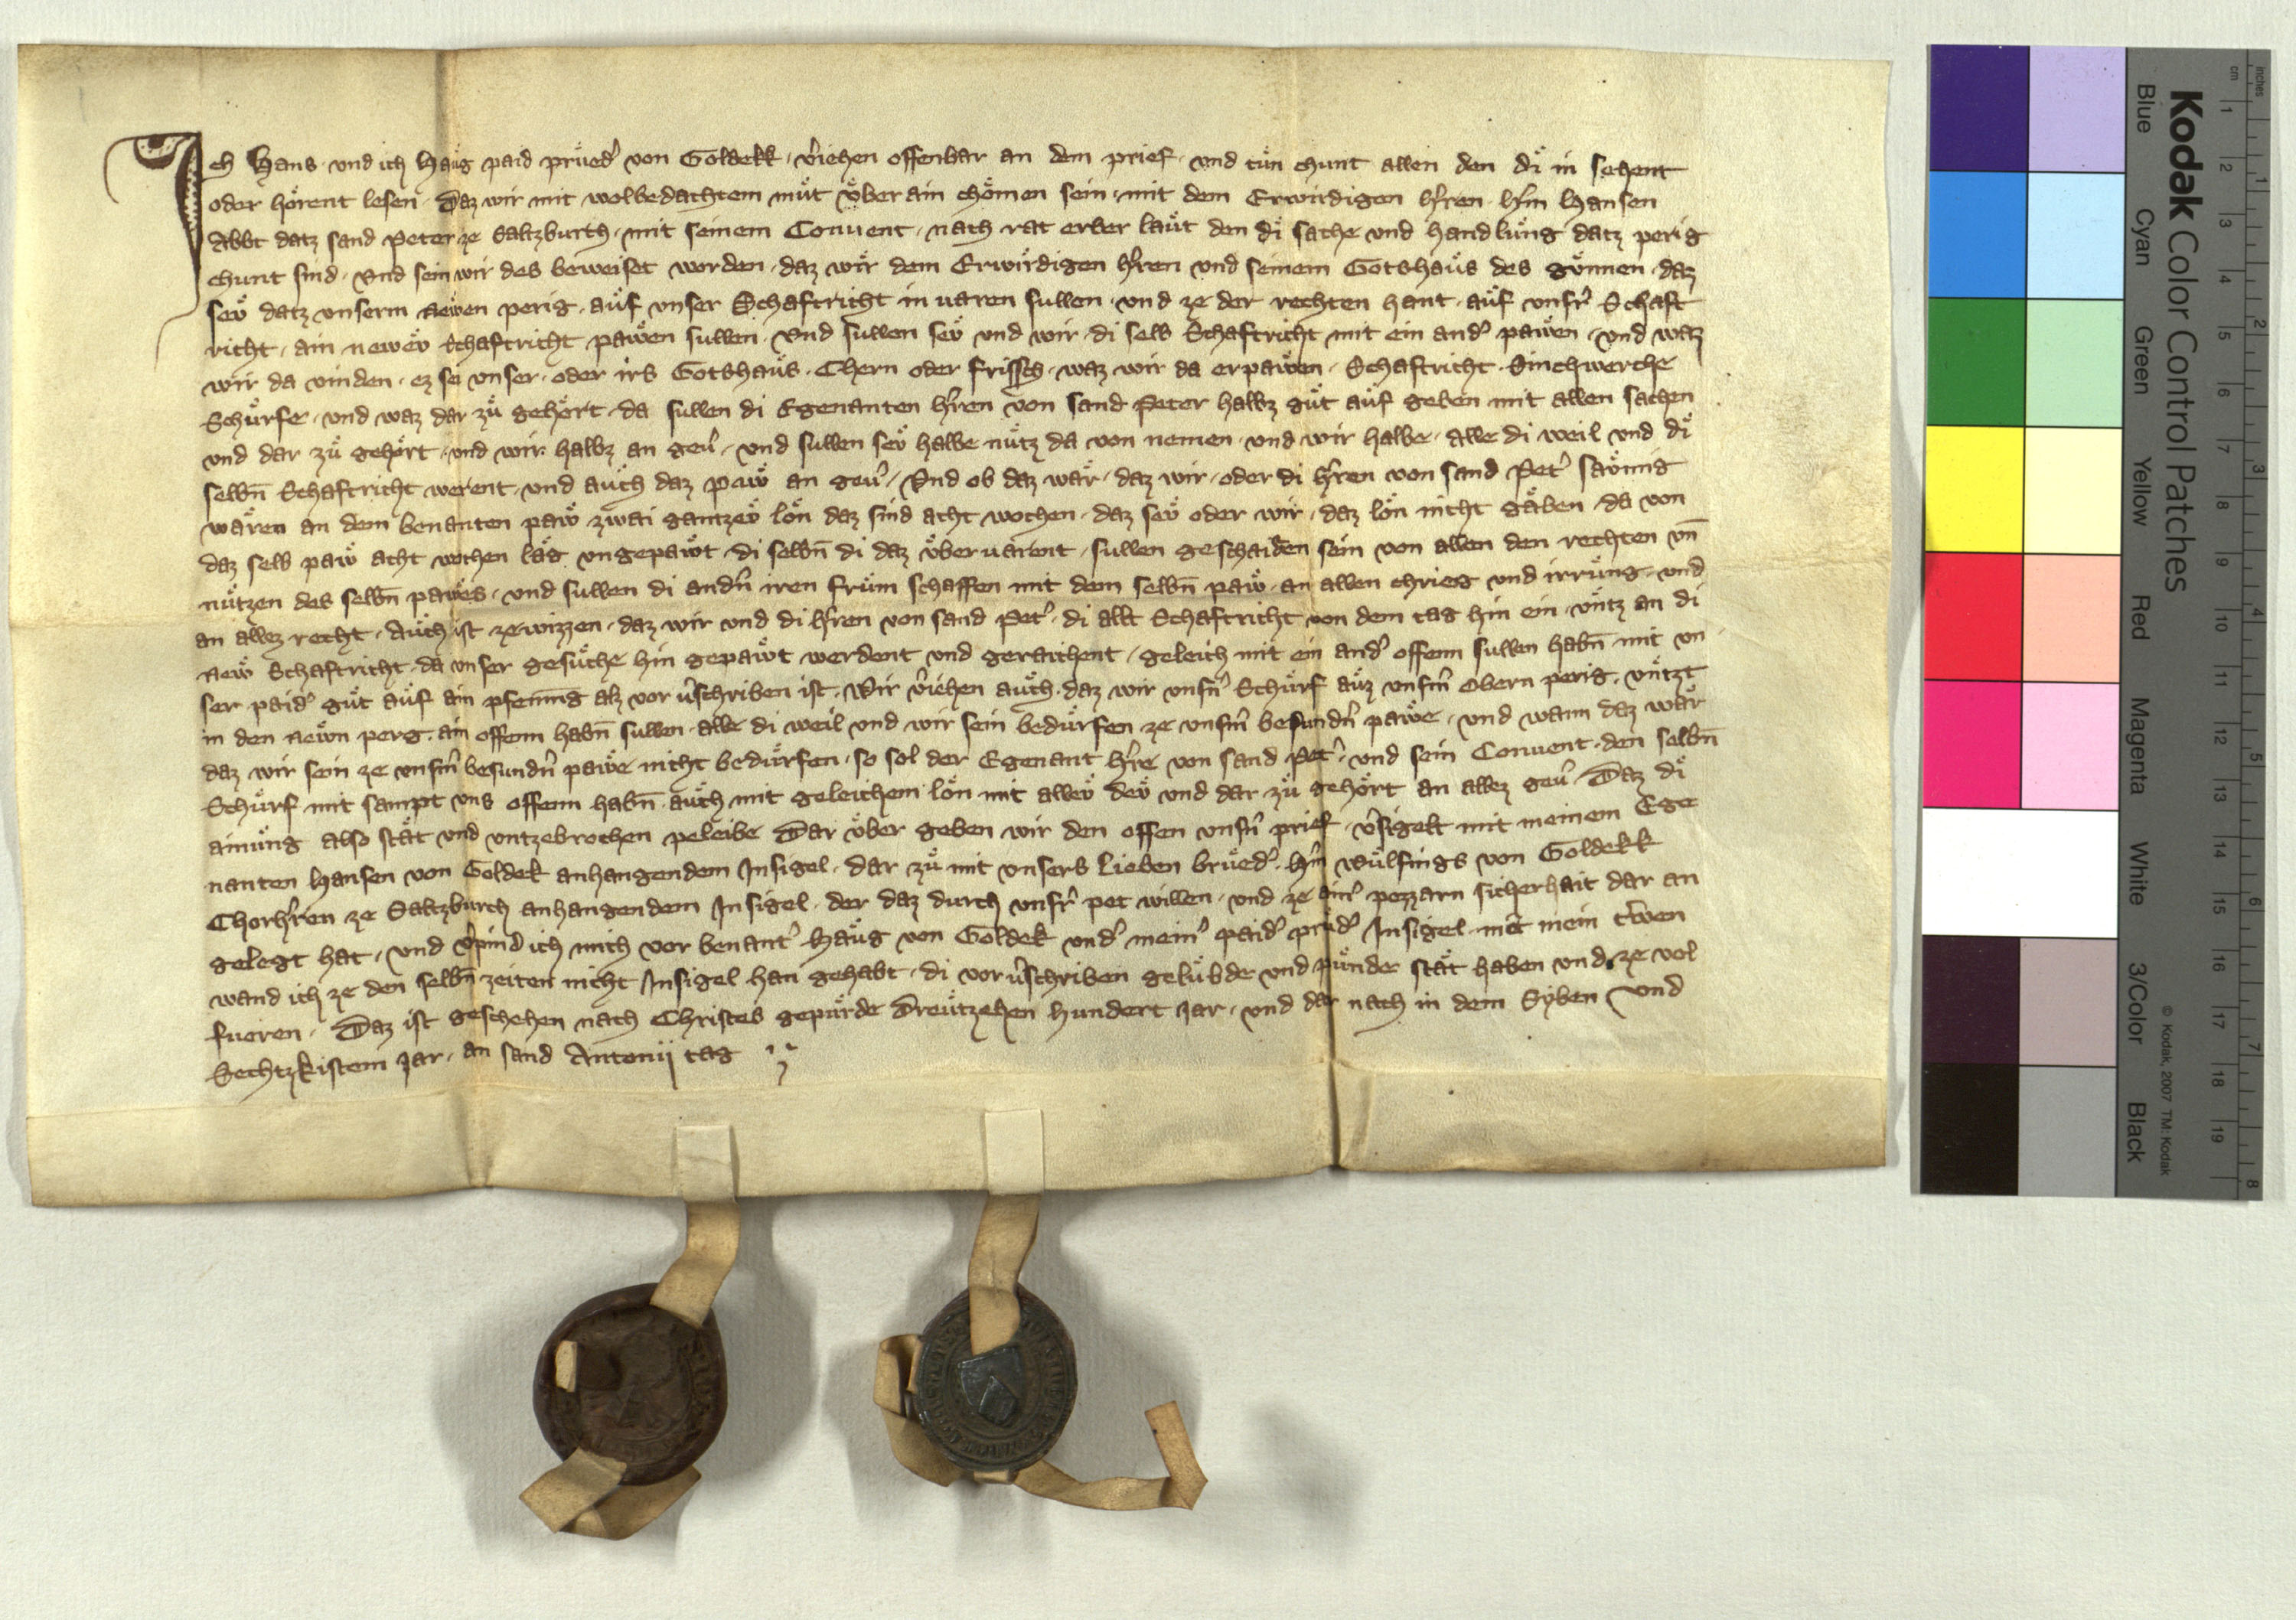 Ich Hans · vnd ich Haǔg paid průedˀ von Goldekk · v̂iehen offenbar an dem prief · vnd tůn chunt allen den dı̊ in sehent
oder hǒrent lesen · Daz wir mit wolbedachtem můt v̊ber ain chǒmen sein · mit dem Erwirdigen hˀren · hˀrn Hansen
Abbt datz sand Peter ze Saltzburch · mit seinem Conuent · nach rat erber laůt den dı̊ sache vnd handlůng datz perig
chunt sind · vnd sein wir des beweiset worden · daz wir dem Erwirdigen hˀren vnd seinem Gotshaůs des gůnnen · daz
sev̊ datz vnserm newen perig · aůf vnser Schaftricht in uaren sullen · vnd ze der rechten hant · aůf vnsrˀ Schaft
richt · ain newev̊ Schaftricht pawen sullen · vnd sullen sev̊ vnd wir · di selb Schaftricht mit ein andˀ pawen · vnd waz
wir da vinden · ez sei vnser · oder irs Gotshaůs · Chern oder frisch · waz wir da erpawen · Schaftricht · Sinchwerche
Schůrfe · vnd waz dar zů gehǒrt · da sullen di Egenanten hˀren von sand Peter halbz gůt aůf geben mit allen sachen
vnd dar zů gehǒrt · vnd wir halbz an geuˀ · vnd sullen sev̊ halbe nůtz da von nemen · vnd wir halbe · alle di weil vnd dı̊
selbn̄ Schaftricht werent · vnd aůch daz paẘ an geuˀ · Vnd ob daz wår · daz wir · oder di hˀren von sand Petˀ sav̊mig
wåren an dem benanten paẘ · zwai gantzev̊ lǒn daz sind acht wochen · daz sev̊ oder wir · daz lǒn nicht gåben · da von
daz selb paẘ acht wochen låg vngepaẘt · di selbn̄ di daz v̊ber uarent · sullen geschaiden sein von allen den rechten vn̄
nůtzen des selbn̄ paẘes · vnd sullen di andn̂ iren frům schaffen mit dem selbn̄ paẘ · an allen chrieg vnd irrůng · vnd
an allez recht · Aůch ist ze wizzen · daz wir vnd di hˀren von sand Petˀ · di allt Schaftricht von dem tag hin ein · vůtz an di
neẘ Schaftricht · da vnser gesůche hin gepaẘt werdent vnd geraichent · geleich mit ein andˀ offenn sullen habn̄ · mit vn
ser paidˀ gůt aůf ain pfenning alz vor v̂schriben ist · Wir v̂iehen aůch · daz wir vnsˀn Schůrf aůz vnsˀm obern perig · vůtzt
in den neẘn perg · ain offenn habn̄ sullen · alle di weil vnd wir sein bedůrfen ze vnsˀm besundn̂ paẘe · vnd wann daz wår
daz wir sein ze vnsˀm besundn̂ paẘe nicht bedůrfen · so sol der Egenant hˀre von sand Petˀ · vnd sein Conuent · den selbn̄
Schůrf · mit sampt vns offenn habn̄ · aůch mit geleichem lǒn mit allev̊ dev̊ vnd dar zů gehǒrt an allez geuˀ · Daz dı̊
ainůng also ståt vnd vntzebrochen peleibe Dar v̊ber geben wir den offen vnsˀn prief · v̂sigelt mit meinem Ege
nanten Hansen von Goldek anhangendem Insigel · dar zů mit vnsers lieben brůedˀ · hˀrn Wůlfings von Goldekk
Chorhˀren ze Saltzburch anhangendem Insigel · der daz durch vnsrˀ pet willen · vnd ze ainˀ pezzarn sicherhait dar an
gelegt hat · vnd v̂pind ich mich vor benantˀ Haůg von Goldek vndˀ meinˀ paidˀ průdˀ Insigel · mit mein trˀwen
wand ich ze den selbn̄ zeiten nicht Insigel han gehabt · di vor v̂schriben gelůbde vnd půnder ståt haben vnd ze vol
fueren · Daz ist geschehen nach Christes gepůrde Dreůtzehen hundert Jar · vnd dar nach in dem Syben vnd
Sechtzkistem Jar · an sand Antonij tag
Kodak Color Control Patches
Blue Cyan Green Yellow Red Magenta White 3/Color Black
© Kodak, 2007 TM: Kodak
cm 1 2 3 4 5 6 7 8 9 10 11 12 13 14 15 16 17 18 19
inches 1 2 3 4 5 6 7 8